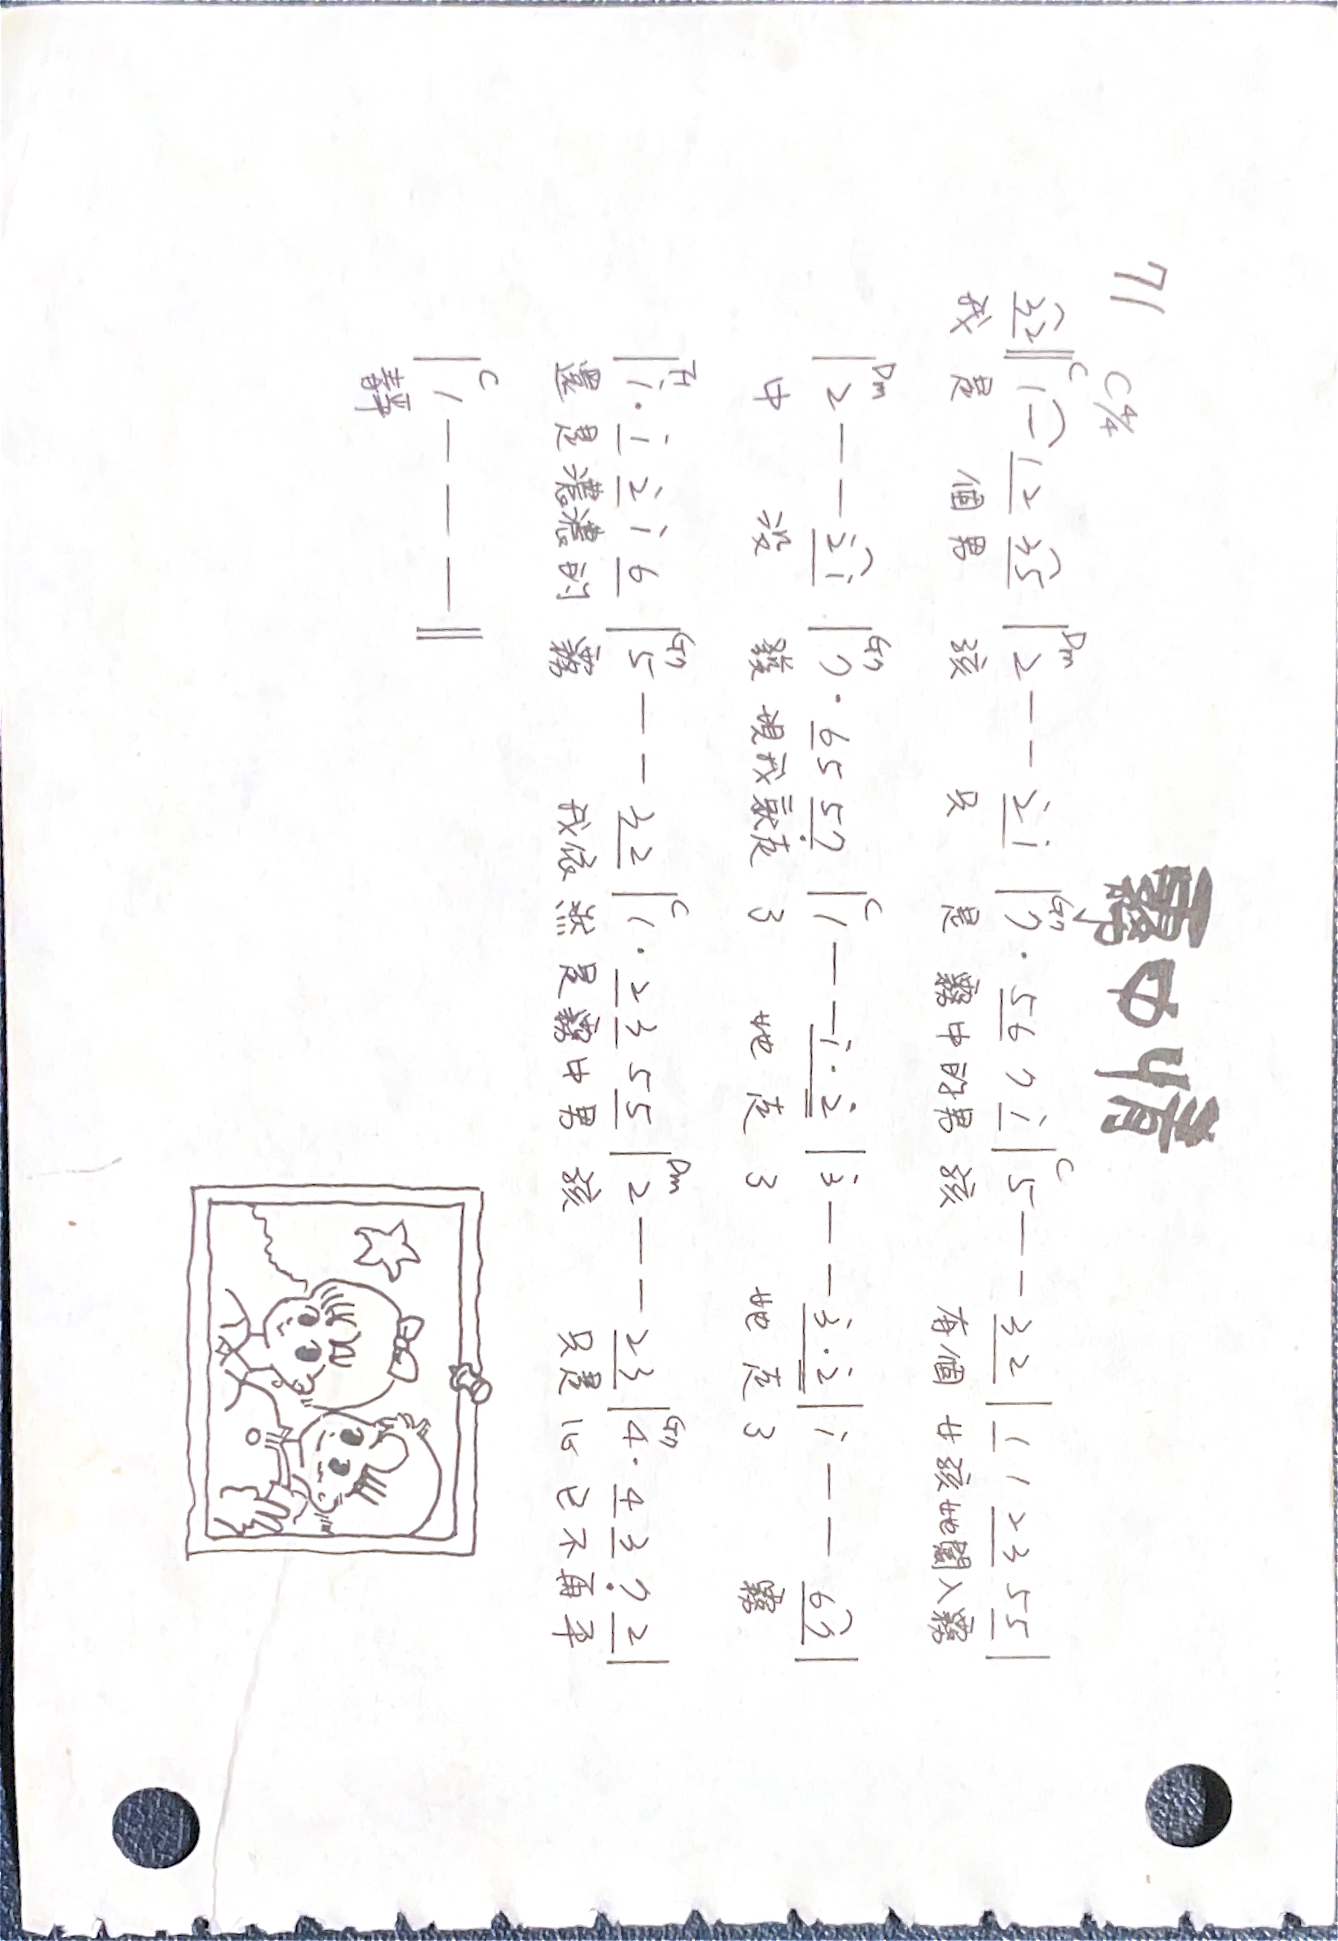 霧中情
71
C 4/4
C Dm G7 C
32 ‖ 1 — 1 2 35 | 2 — — 2̇ 1̇ | 7 · 5 6 7 1̇ | 5 — — 3 2 | 1 1 2 3 5 5 |
我 是 個 男 孩 只 是 霧 中 的 男 孩 有 個 女 孩 她 闖 入 霧
Dm G7 C
| 2 — — 2̇ 1̇ | 7 · 6 5 5 7̣ | 1 — — 1̇ · 2̇ | 3̇ — — 3̇ · 2̇ | 1̇ — — 6 7 |
中 没 發 現 我 就 走 了 她 走 了 她 走 了 霧
F G7 C Dm G7
| 1̇ · 1̇ 2̇ 1̇ 6 | 5 — — 3 2 | 1 · 2 3 5 5 | 2 — — 2 3 | 4 · 4 3 7̣ 2 |
還 是 濃 濃 的 霧 我 依 然 是 霧 中 男 孩 只 是 心 已 不 再 平
C
| 1 — — — ‖
靜